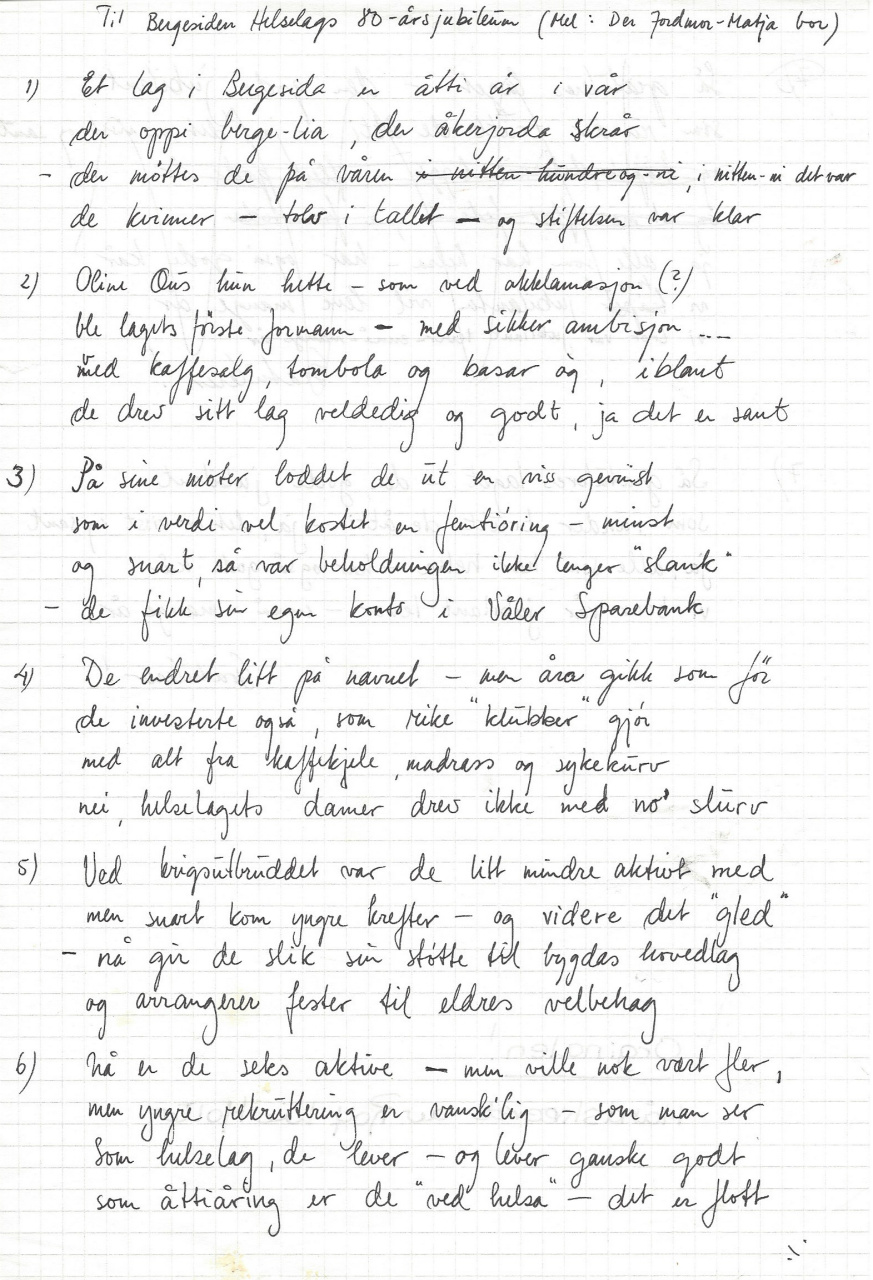 Til Bergesiden Helselags 80-årsjubileum (Mel: Der Fordmor-Matja bor)
1) Et lag i Bergesida er åtti år i vår
der oppi berge-lia, der åkerjorda skrår
- der møttes de på våren i nitten-hundre og-ni, i nitten-ni det var
de kvinner - tolv i tallet - og stiftelsen var klar
2) Oline Ous hun hette - som ved akklamasjon (?)
ble lagets første formann - med sikker ambisjon ...
med kaffesalg, tombola og basar òg, iblant
de drev sitt lag veldedig og godt, ja det er sant
3) På sine møter loddet de ut en viss gevinst
som i verdi vel kostet en femtiøring - minst
og snart, så var beholdningen ikke lenger "slank"
- de fikk sin egen konto i Våler Sparebank
4) De endret litt på navnet - men åra gikk som før
de investerte også, som rike "klubber" gjør
med alt fra kaffekjele, madrass og sykekurv
nei, helselagets damer drev ikke med no' slurv
5) Ved krigsutbruddet var de litt mindre aktivt med
men snart kom yngre krefter - og videre det "gled"
- nå gir de slik sin støtte til bygdas hovedlag
og arrangerer fester til eldres velbehag
6) Nå er de seks aktive - men ville nok vært fler,
men yngre rekruttering er vansk'lig - som man ser
Som helselag, de lever - og lever ganske godt
som åttiåring er de "ved helsa" - det er flott